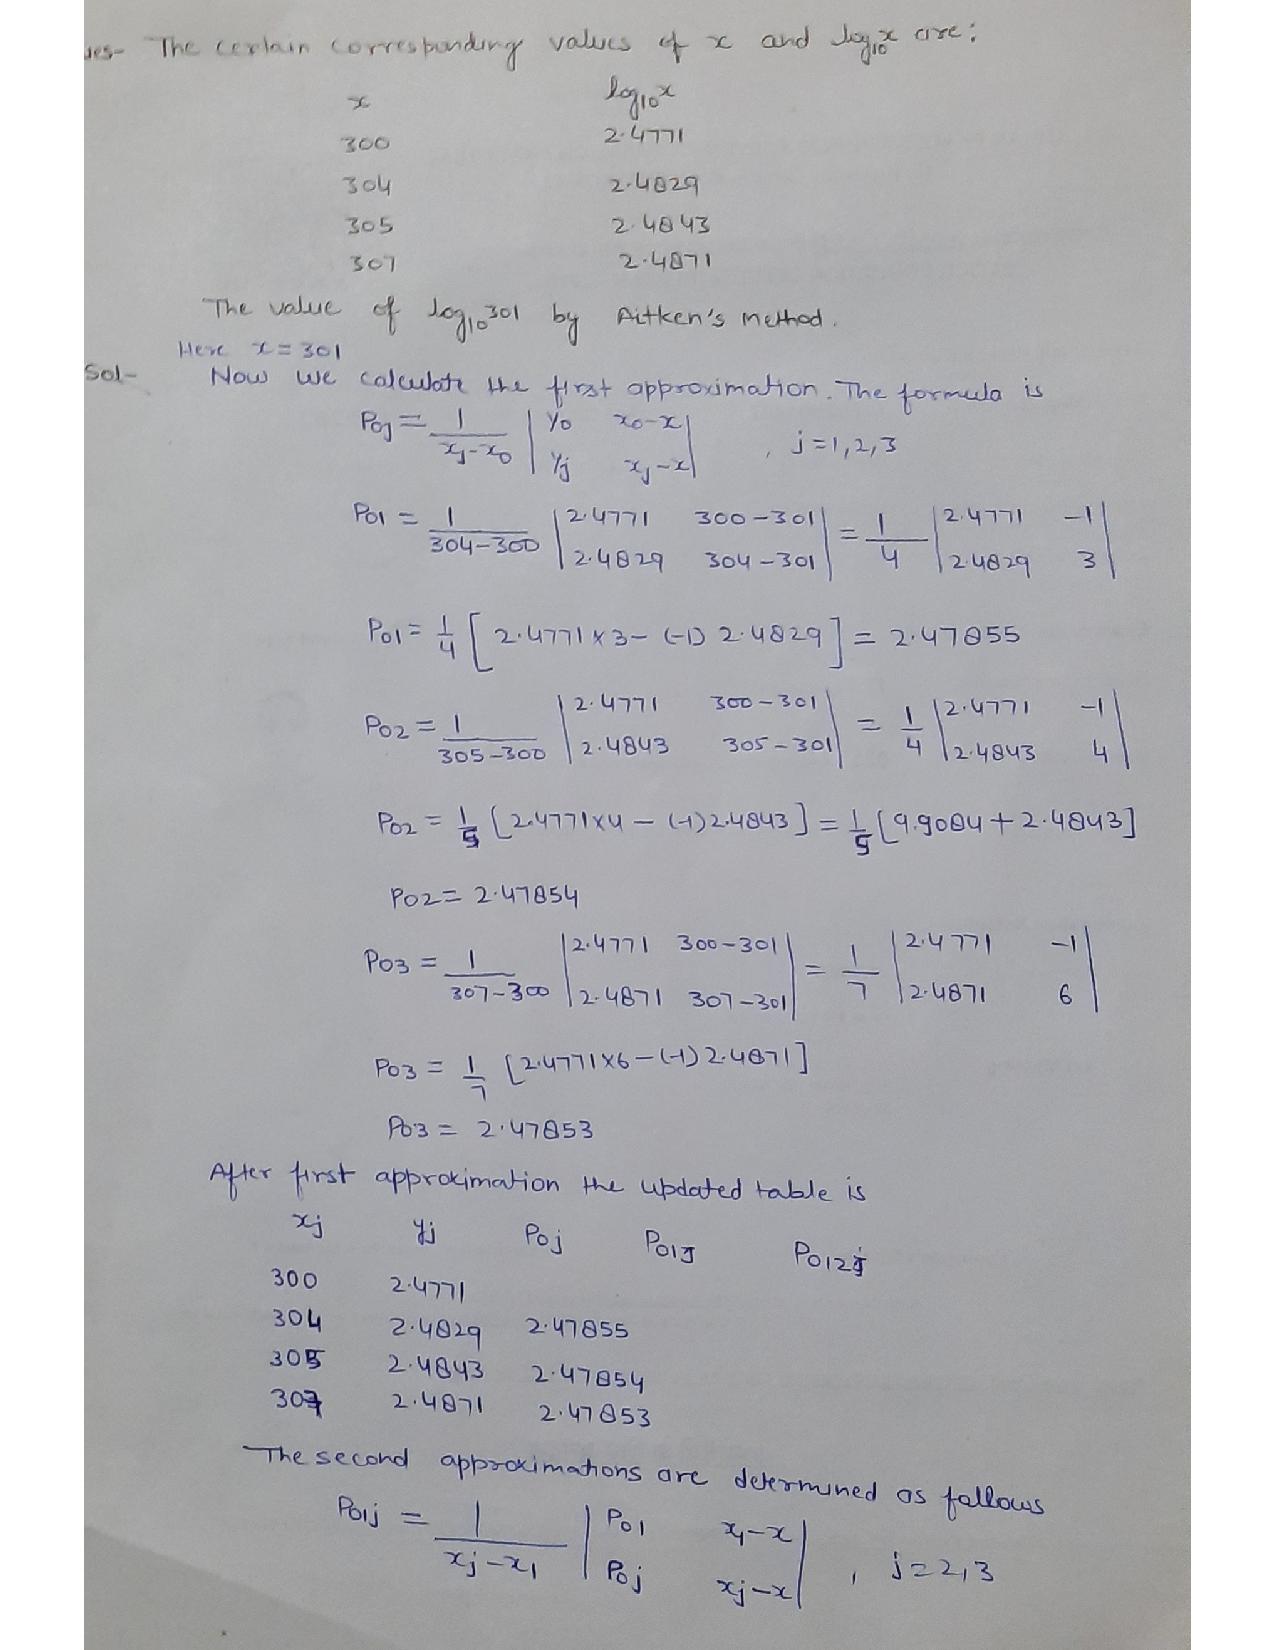 ues- The certain corresponding values of x and log₁₀x are:
x log₁₀x
300 2.4771
304 2.4829
305 2.4843
307 2.4871
The value of log₁₀301 by Aitken's method.
Here x=301
Sol- Now we calculate the first approximation. The formula is
P0j = 1/(xj-x0) | y0 x0-x ; yj xj-x | , j=1,2,3
P01 = 1/(304-300) | 2.4771 300-301 ; 2.4829 304-301 | = 1/4 | 2.4771 -1 ; 2.4829 3 |
P01 = 1/4 [2.4771×3-(-1) 2.4829] = 2.47855
P02 = 1/(305-300) | 2.4771 300-301 ; 2.4843 305-301 | = 1/4 | 2.4771 -1 ; 2.4843 4 |
P02 = 1/5 [2.4771×4-(-1)2.4843] = 1/5 [9.9084+2.4843]
P02 = 2.47854
P03 = 1/(307-300) | 2.4771 300-301 ; 2.4871 307-301 | = 1/7 | 2.4771 -1 ; 2.4871 6 |
P03 = 1/7 [2.4771×6-(-1)2.4871]
P03 = 2.47853
After first approximation the updated table is
xj yj P0j P01j P012j
300 2.4771
304 2.4829 2.47855
305 2.4843 2.47854
307 2.4871 2.47853
The second approximations are determined as follows
P01j = 1/(xj-x1) | P01 x1-x ; P0j xj-x | , j=2,3